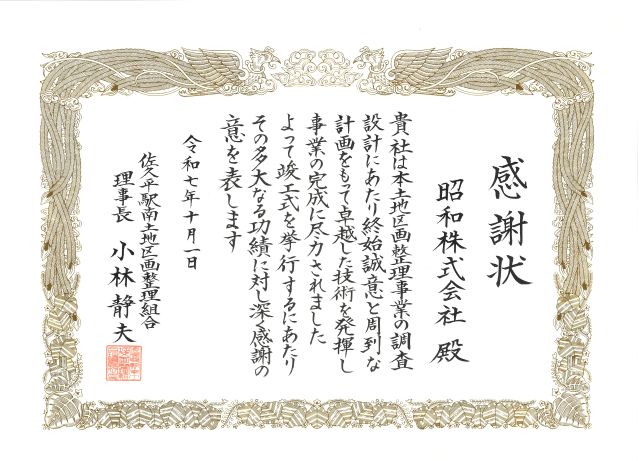 感謝状
昭和株式会社 殿
貴社は本土地区画整理事業の調査
設計にあたり終始誠意と周到な
計画をもって卓越した技術を発揮し
事業の完成に尽力されました
よって竣工式を挙行するにあたり
その多大なる功績に対し深く感謝の
意を表します
令和七年十月一日
佐久平駅南土地区画整理組合
理事長 小林静夫